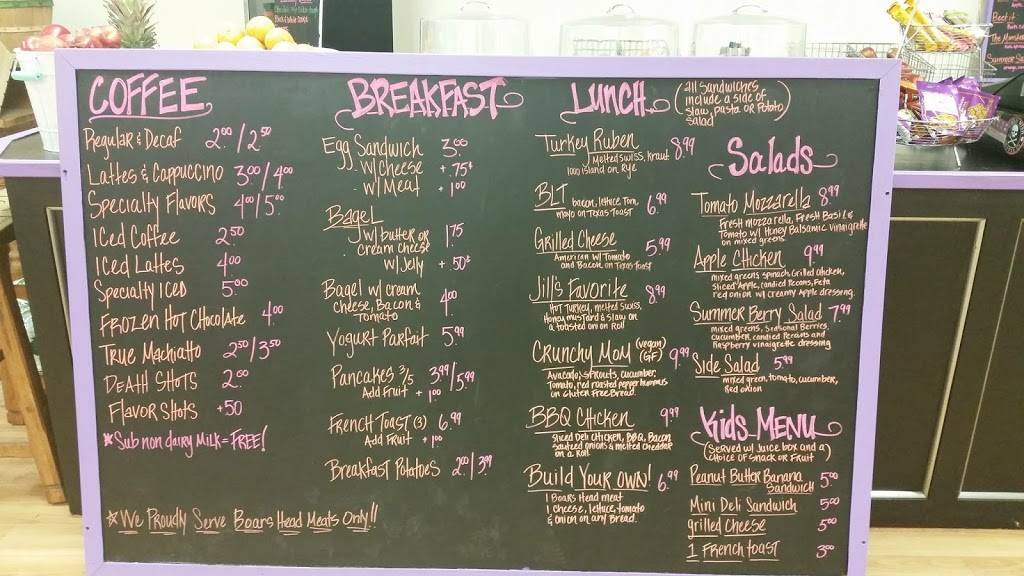 COFFEE
Regular & Decaf 2.00/2.50
Lattes & Cappuccino 3.00/4.00
Specialty Flavors 4.00/5.00
Iced Coffee 2.50
Iced Lattes 4.00
Specialty Iced 5.00
Frozen Hot Chocolate 4.00
True Machiatto 2.50/3.50
DEAtH SHOTS 2.00
Flavor Shots +50
*Sub non dairy Milk = FREE!
*We Proudly Serve Boars Head Meats Only!!
BREAKFAST
Egg Sandwich 3.00
w/Cheese +.75¢
w/Meat +1.00
Bagel
w/ butter or cream cheese 1.75
w/Jelly +.50¢
Bagel w/ cream
Cheese, Bacon &
Tomato 4.00
Yogurt Parfait 5.99
Pancakes 3/5 3.99/5.99
Add Fruit +1.00
French Toast (3) 6.99
Add Fruit +1.00
Breakfast Potatoes 2.00/3.99
LUNCH
(All Sandwiches
include a side of
Slaw, Pasta or Potato
Salad)
Turkey Ruben 8.99
Melted Swiss, Kraut
1000 Island on Rye
BLT bacon, lettuce, Tom, 6.99
mayo on Texas Toast
Grilled Cheese 5.99
American w/ Tomato
and Bacon on Texas Toast
Jill's Favorite 8.99
Hot Turkey, melted Swiss,
Honey mustard & Slaw on
a toasted onion Roll
Crunchy Mom (vegan) (GF) 9.99
Avocado, Sprouts, cucumber,
Tomato, red roasted pepper hummus
on Gluten Free Bread.
BBQ Chicken 9.99
Sliced Deli Chicken, BBQ, Bacon
Sauteed onions & melted Cheddar
on a Roll
Build Your Own! 6.99
1 Boars Head meat
1 Cheese, lettuce, tomato
& onion on any Bread.
Salads
Tomato Mozzarella 8.99
Fresh mozzarella, Fresh Basil &
Tomato w/ Honey Balsamic Vinaigrette
on mixed greens
Apple Chicken 9.99
mixed greens, spinach, Grilled chicken,
Sliced Apple, Candied Pecans, Feta
red onion w/ creamy Apple dressing
Summer Berry Salad 7.99
mixed greens, Seasonal Berries,
cucumber, candied Pecans and
Raspberry Vinaigrette dressing
Side Salad 5.99
mixed green, tomato, cucumber,
Red onion
Kids Menu
(Served w/ Juice box and a
Choice of Snack or Fruit)
Peanut Butter Banana
Sandwich 5.00
Mini Deli Sandwich 5.00
grilled Cheese 5.00
1 French toast 3.00